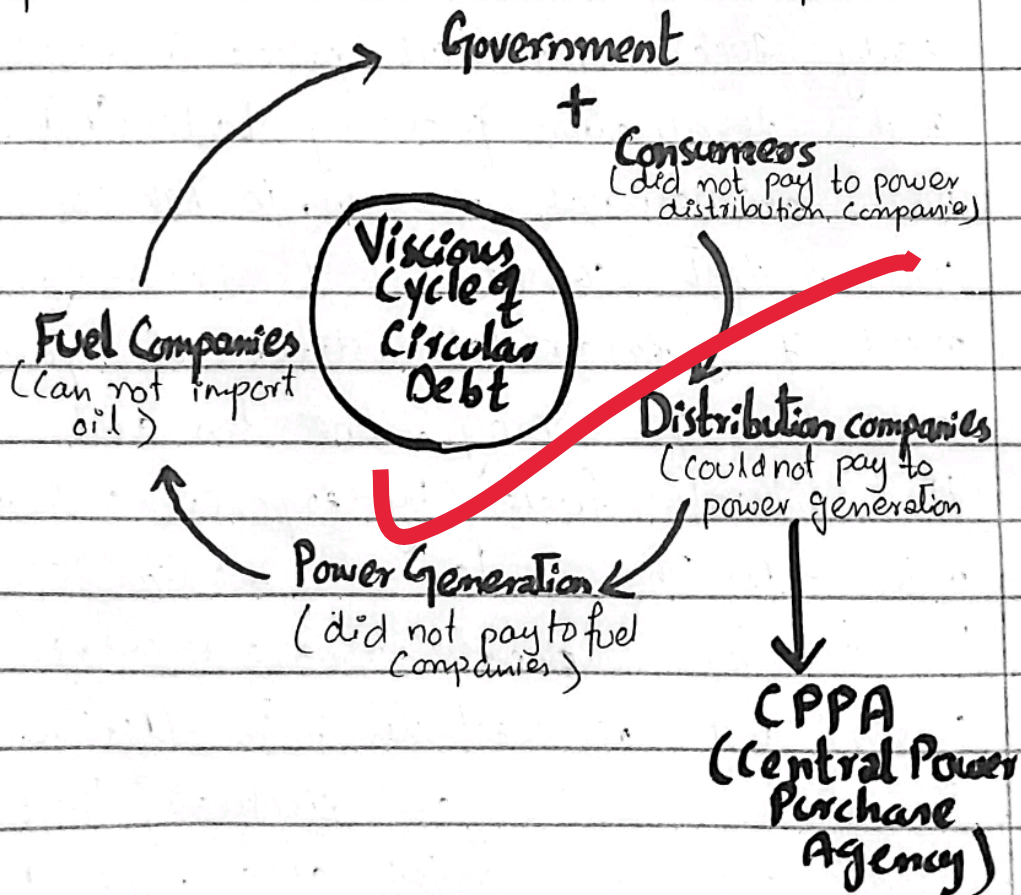 Government
+
Consumers
(did not pay to power
distribution companies)
Viscious
Cycle of
Circular
Debt
Fuel Companies
(Can not import
oil)
Distribution companies
(could not pay to
power generation
Power Generation
(did not pay to fuel
Companies)
CPPA
(Central Power
Purchase
Agency)